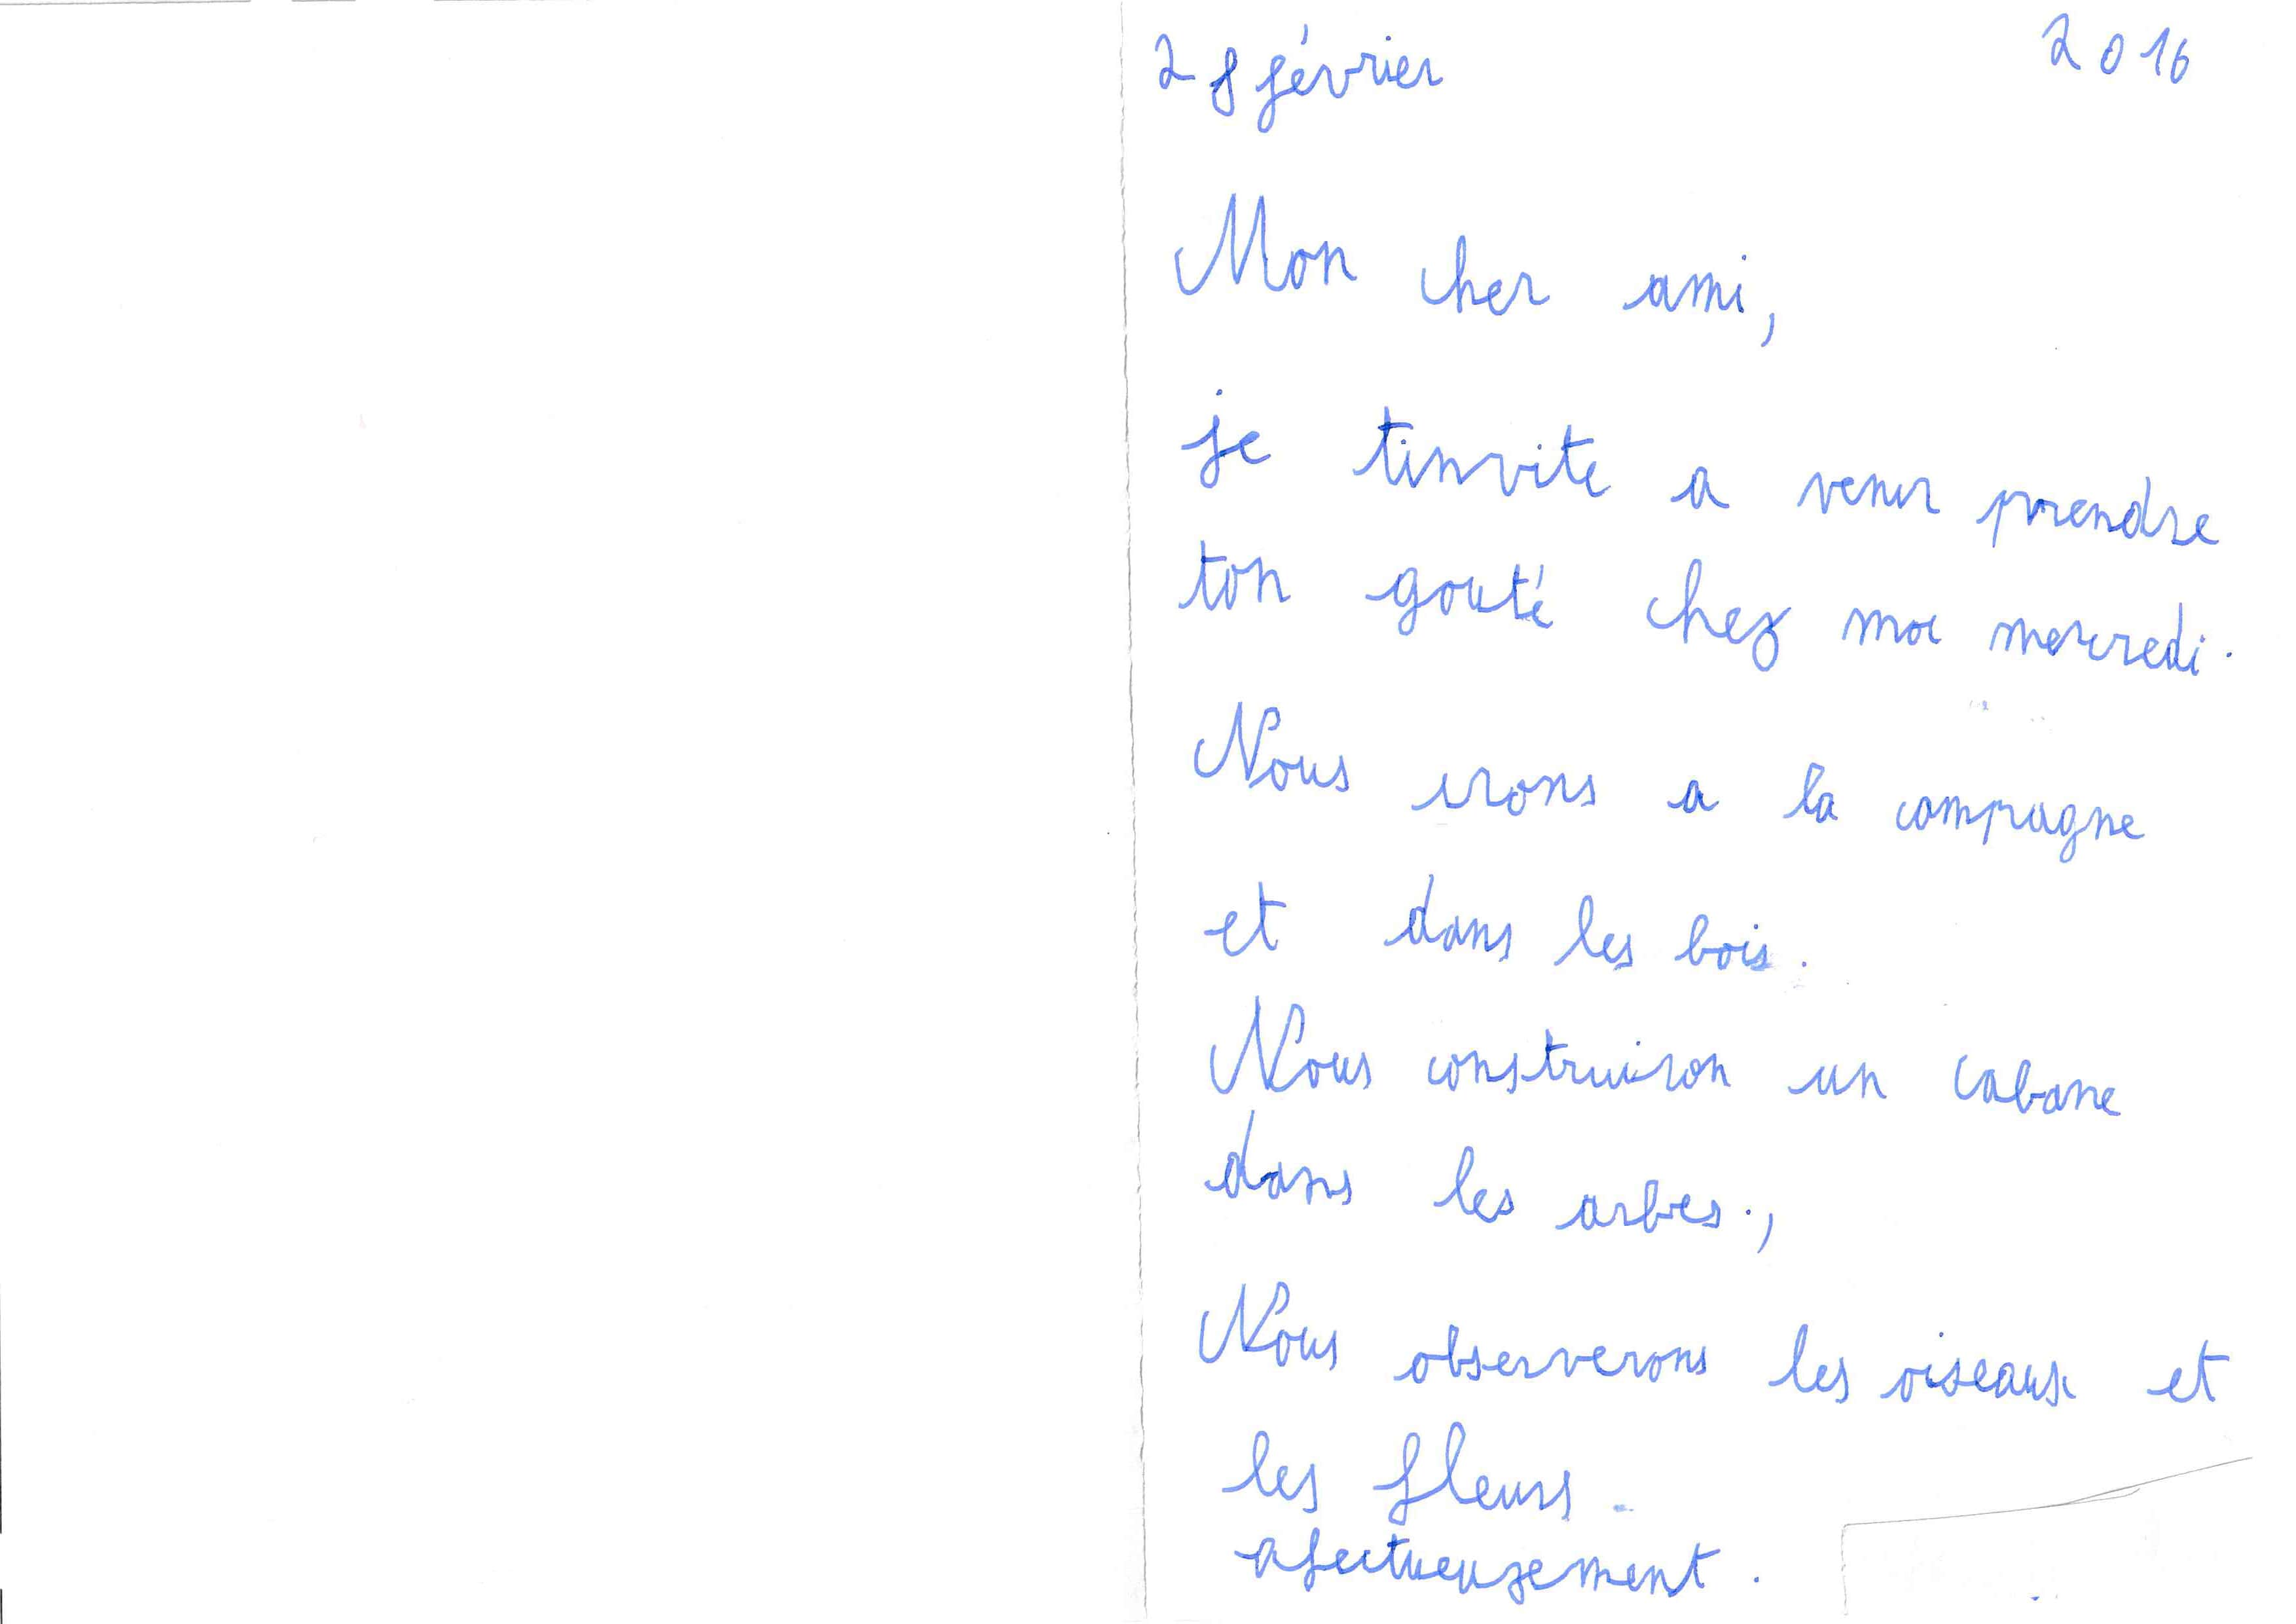 28 février 2016
Mon cher ami,
je tinvite a venir prendre
ton gouté chez moi mercredi.
Nous irons a la campagne
et dans les bois.
Nous construiron un cabane
dans les arbes.,
Nous observerons les oiseaux et
les fleurs.
afectueuzement.